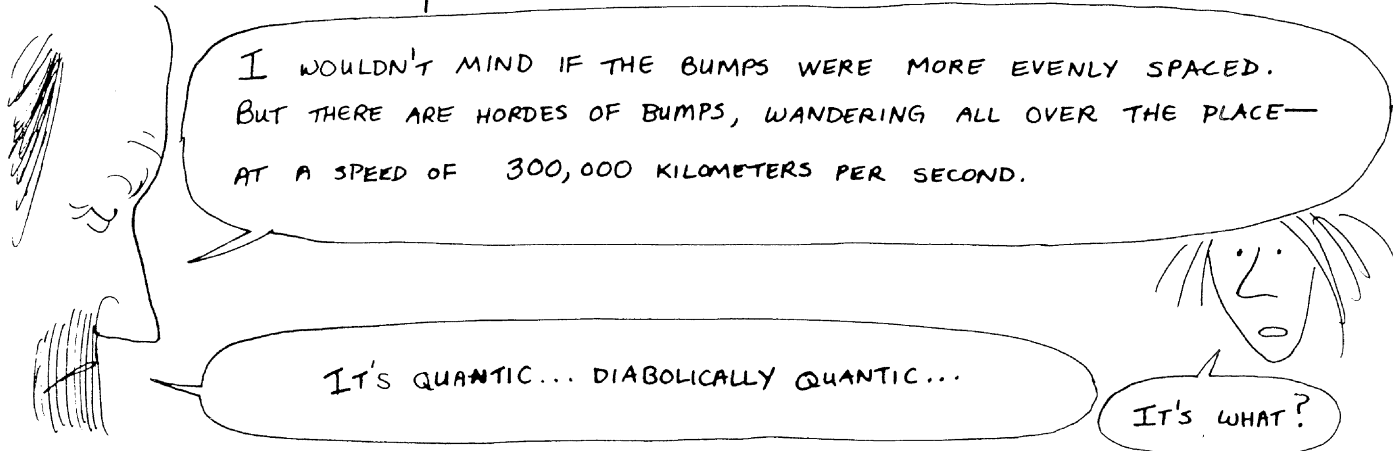 I WOULDN'T MIND IF THE BUMPS WERE MORE EVENLY SPACED.
BUT THERE ARE HORDES OF BUMPS, WANDERING ALL OVER THE PLACE—
AT A SPEED OF 300,000 KILOMETERS PER SECOND.
IT'S QUANTIC... DIABOLICALLY QUANTIC...
IT'S WHAT?